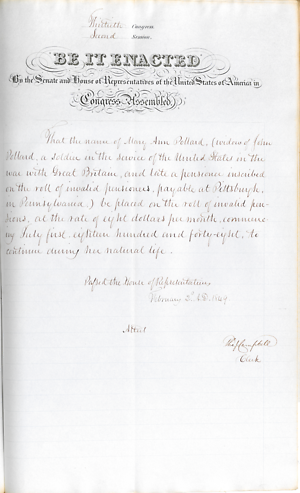 Thirtieth Congress
Second Session
BE IT ENACTED
By the Senate and House of Representatives of the United States of America in
Congress Assembled,
That the name of Mary Ann Pollard, (widow of John
Pollard, a soldier in the service of the United States in the
war with Great Britain, and late a pensioner inscribed
on the roll of invalid pensioners, payable at Pittsburgh,
in Pennsylvania,) be placed on the roll of invalid pen-
sions, at the rate of eight dollars per month, commenc-
ing July first, eighteen hundred and forty-eight, to
continue during her natural life.
Passed the House of Representatives
February 2d. 1849.
Attest
Tho J Campbell
Clerk